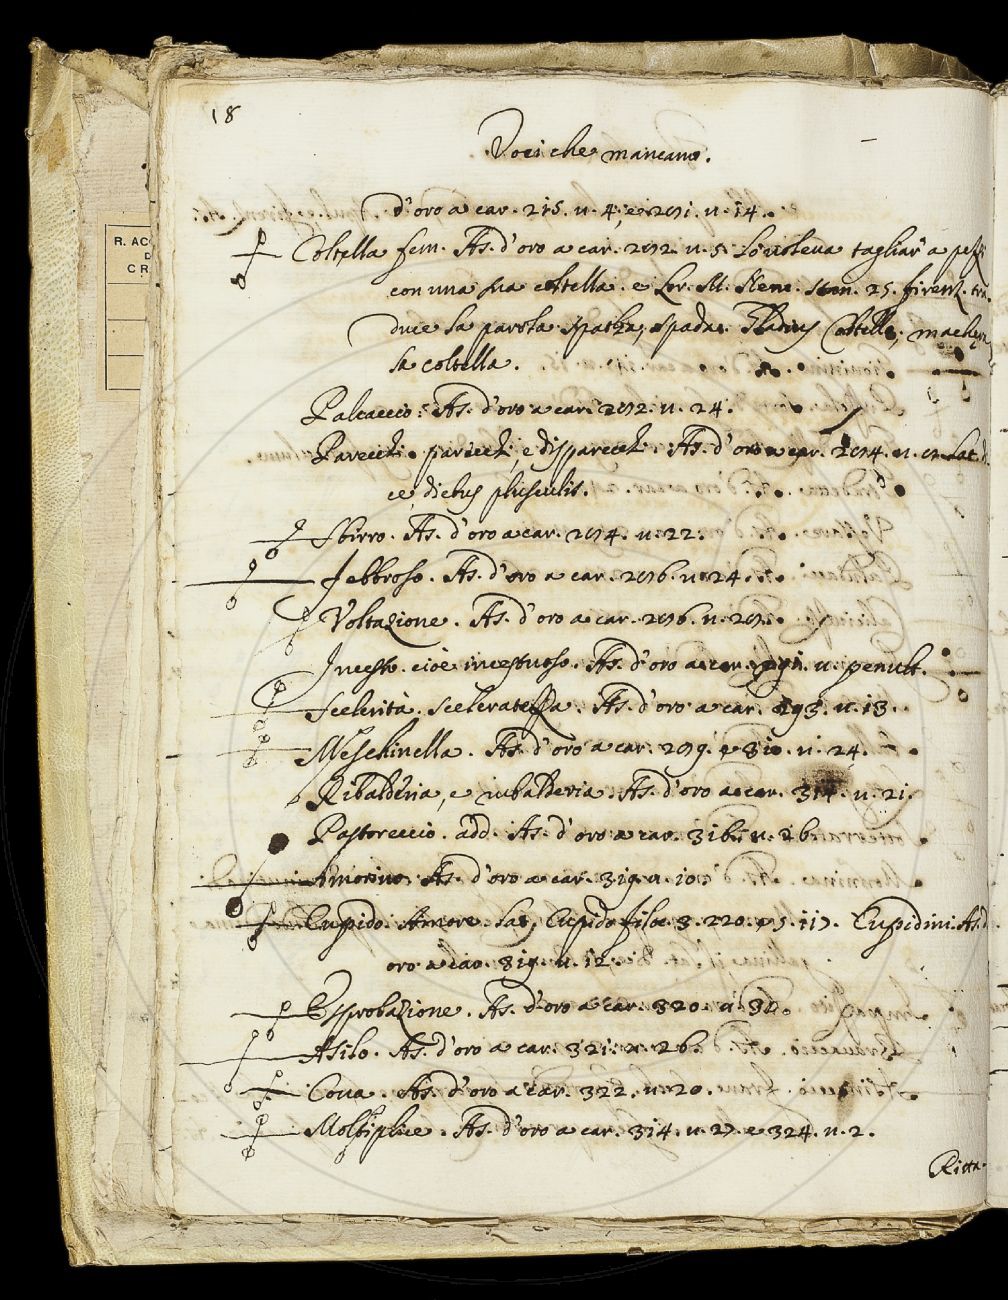 18
Voci che mancano.
d'oro a car. 215. n. 4. e 291. n. 14.
Coltella fem. As. d'oro a car. 292. n. 5. Lo voleva tagliar a pezzi
con una sua coltella. e Lor. M. Nenc. stan. 25. firenz. tra
duce la parola spatha, spada. Gladius Coltello, machera
la coltella.
R. AC
D
CR
Palcaccio. As. d'oro a car. 292. n. 24.
Parecchi. parecchi, e disparecchi. As. d'oro a car. 294. n. Lat. d
ce, diebus plusculis.
Sbirro. As. d'oro a car. 294. n. 22.
Febbroso. As. d'oro a car. 296. n. 24.
Voltazione. As. d'oro a car. 296. n. 29.
Incesto. cioè incestuoso. As. d'oro a car. n. penult.
Scelerità. Sceleratezza. As. d'oro a car. 293. n. 13.
Meschinella. As. d'oro a car. 299. e 310. n. 24.
Ribalderia, e rubalderia. As. d'oro a car. 314. n. 21.
Pastoreccio. add. As. d'oro a car. 316. n. 26
Amorino. As. d'oro a car. 319. n. 10.
Cupido. Amore. Lat. Cupido filoc. 3. 220. e 5. 117. Cupidini. As. d'
oro a car. 319. n. 12.
Esprobazione. As. d'oro a car. 320. n. 30.
Asilo. As. d'oro a car. 321. n. 26.
Cova. As. d'oro a car. 322. n. 20.
Moltiplice. As. d'oro a car. 314. n. 27. e 324. n. 2.
Ritta.